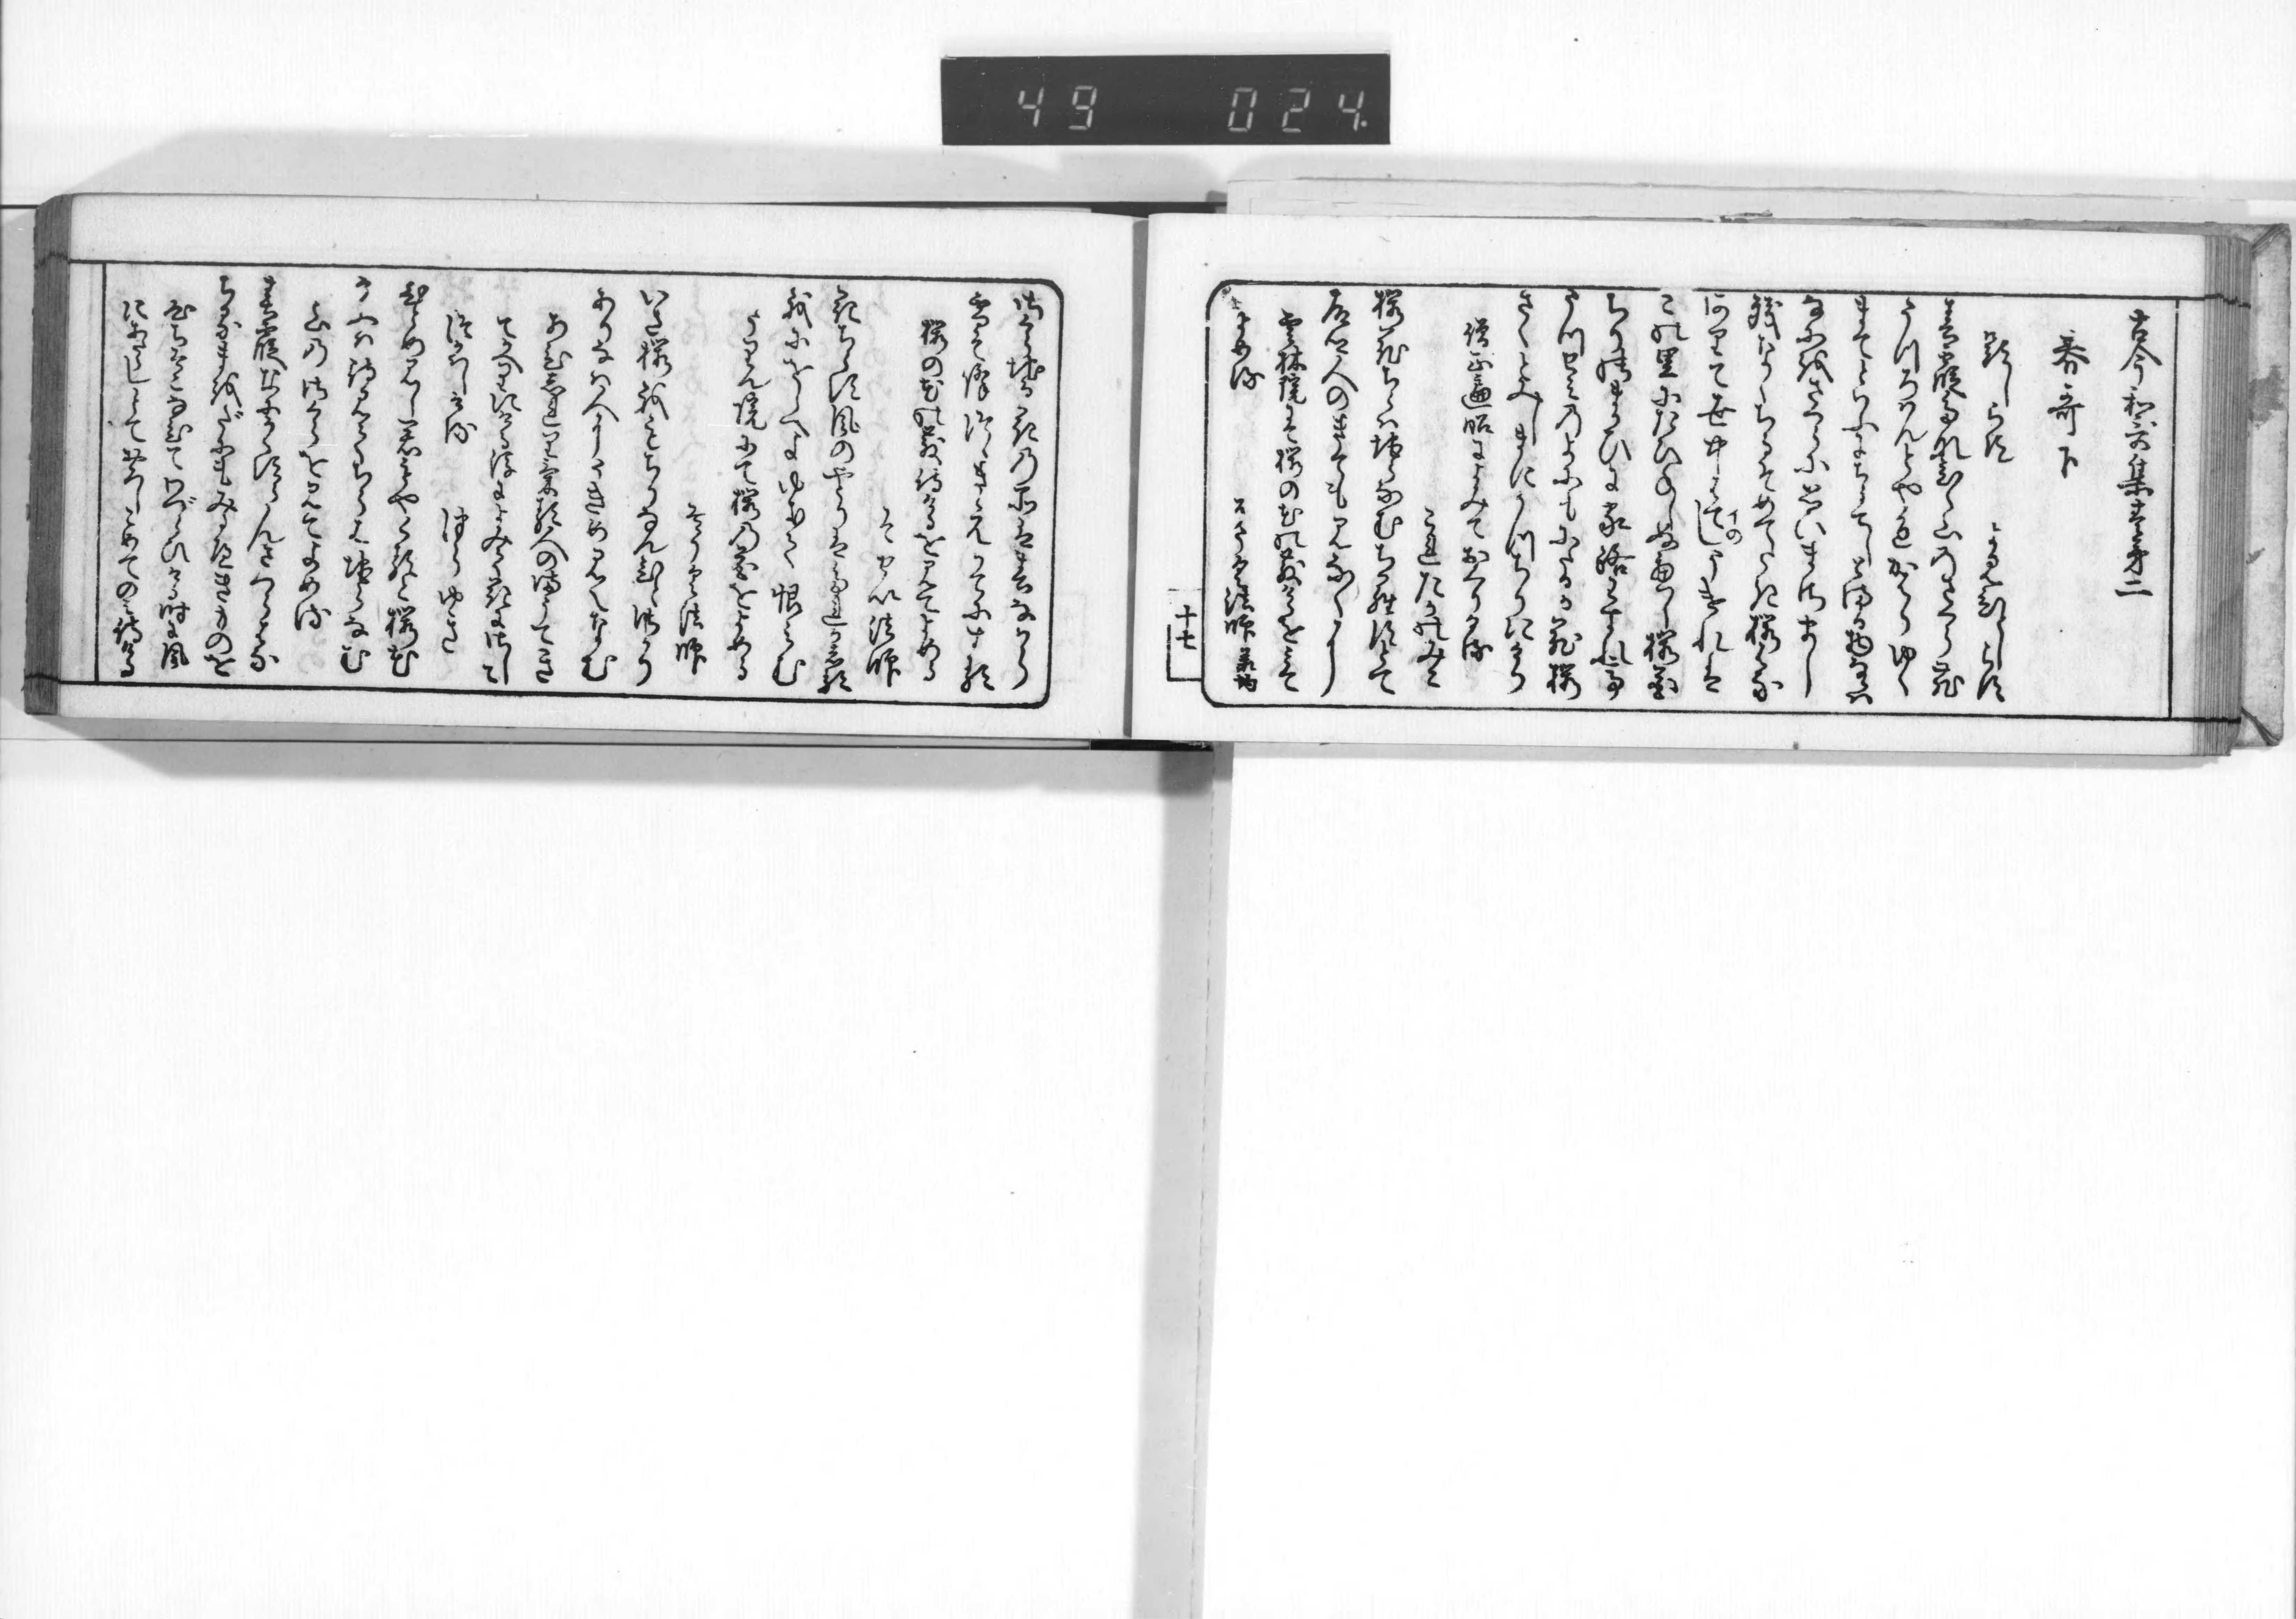 49 024.
古今和哥集巻第二
春哥下
題しらす よみ人しらす
春霞たなひく山のさくら花
うつろはんとや色かはりゆく
まてといふにちらてしとまる物ならは
なにを桜に思ひまさまし
残なくちるそめてたき桜花
ありて世中はてのうけれは
この里にたひねしぬへし桜花
ちりのまかひに家路わすれて
うつせみの世にもにたるか花桜
さくとみしまにかつちりにけり
僧正遍昭によみておくりける
これたかのみこ
桜花ちらはちらなむちらすとて
ふる里人のきてもみなくに
雲林院にて桜の花のちりけるをみて
よめる そうく法師
十七
さくらちる花の所は春なから
雪そ降つゝきえかてにする
桜の花のちり侍けるをみてよめる
そせい法師
花ちらす風のやとりはたれかしる
我にをしへよ行てうらみむ
うりん院にて桜の花をよめる
そうく法師
いさ桜我もちりなんひとさかり
ありなは人にうきめみえなむ
あひしれりける人のまうてき
てかへりにける後によみて花にさし
てつかはしける つらゆき
ひとめみし君もやくると桜花
けふはまちみてちらはちらなむ
山のさくらをみてよめる
春霞なにかくすらん桜花
ちるまをたにもみるへきものを
心ちそこなひてわつらひける時に風
にあたらしとておろしこめてのみ侍ける